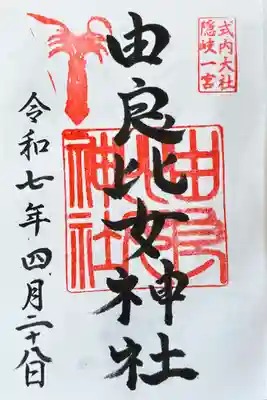 式内大社
隠岐一宮
由良比女神社
由良比女神社
令和七年四月二十八日